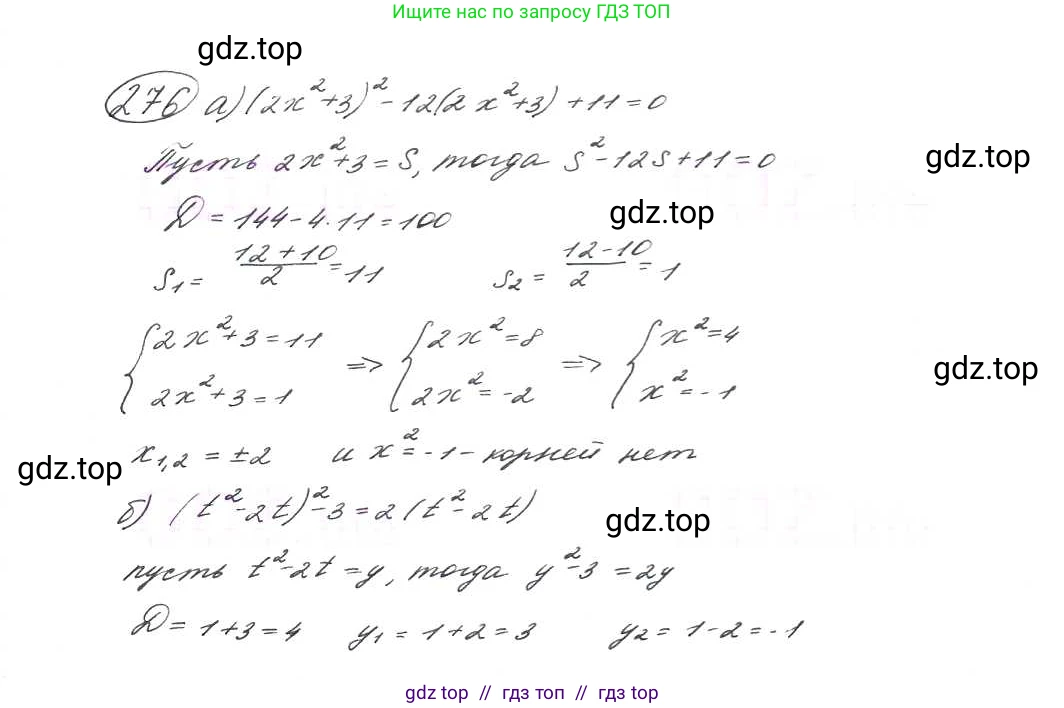 Ищите нас по запросу ГДЗ ТОП
gdz.top
276 а) (2x²+3)² - 12(2x²+3) + 11 = 0
Пусть 2x²+3 = S, тогда S² - 12S + 11 = 0
gdz.top
D = 144 - 4·11 = 100
gdz.top
S₁ = (12+10)/2 = 11 S₂ = (12-10)/2 = 1
{2x²+3 = 11 => {2x² = 8 => {x² = 4
2x²+3 = 1 2x² = -2 x² = -1
gdz.top
x₁,₂ = ±2 и x² = -1 - корней нет
gdz.top
б) (t²-2t)² - 3 = 2(t²-2t)
gdz.top
пусть t²-2t = y, тогда y²-3 = 2y
D = 1+3 = 4 y₁ = 1+2 = 3 y₂ = 1-2 = -1
gdz top // гдз топ // gdz top